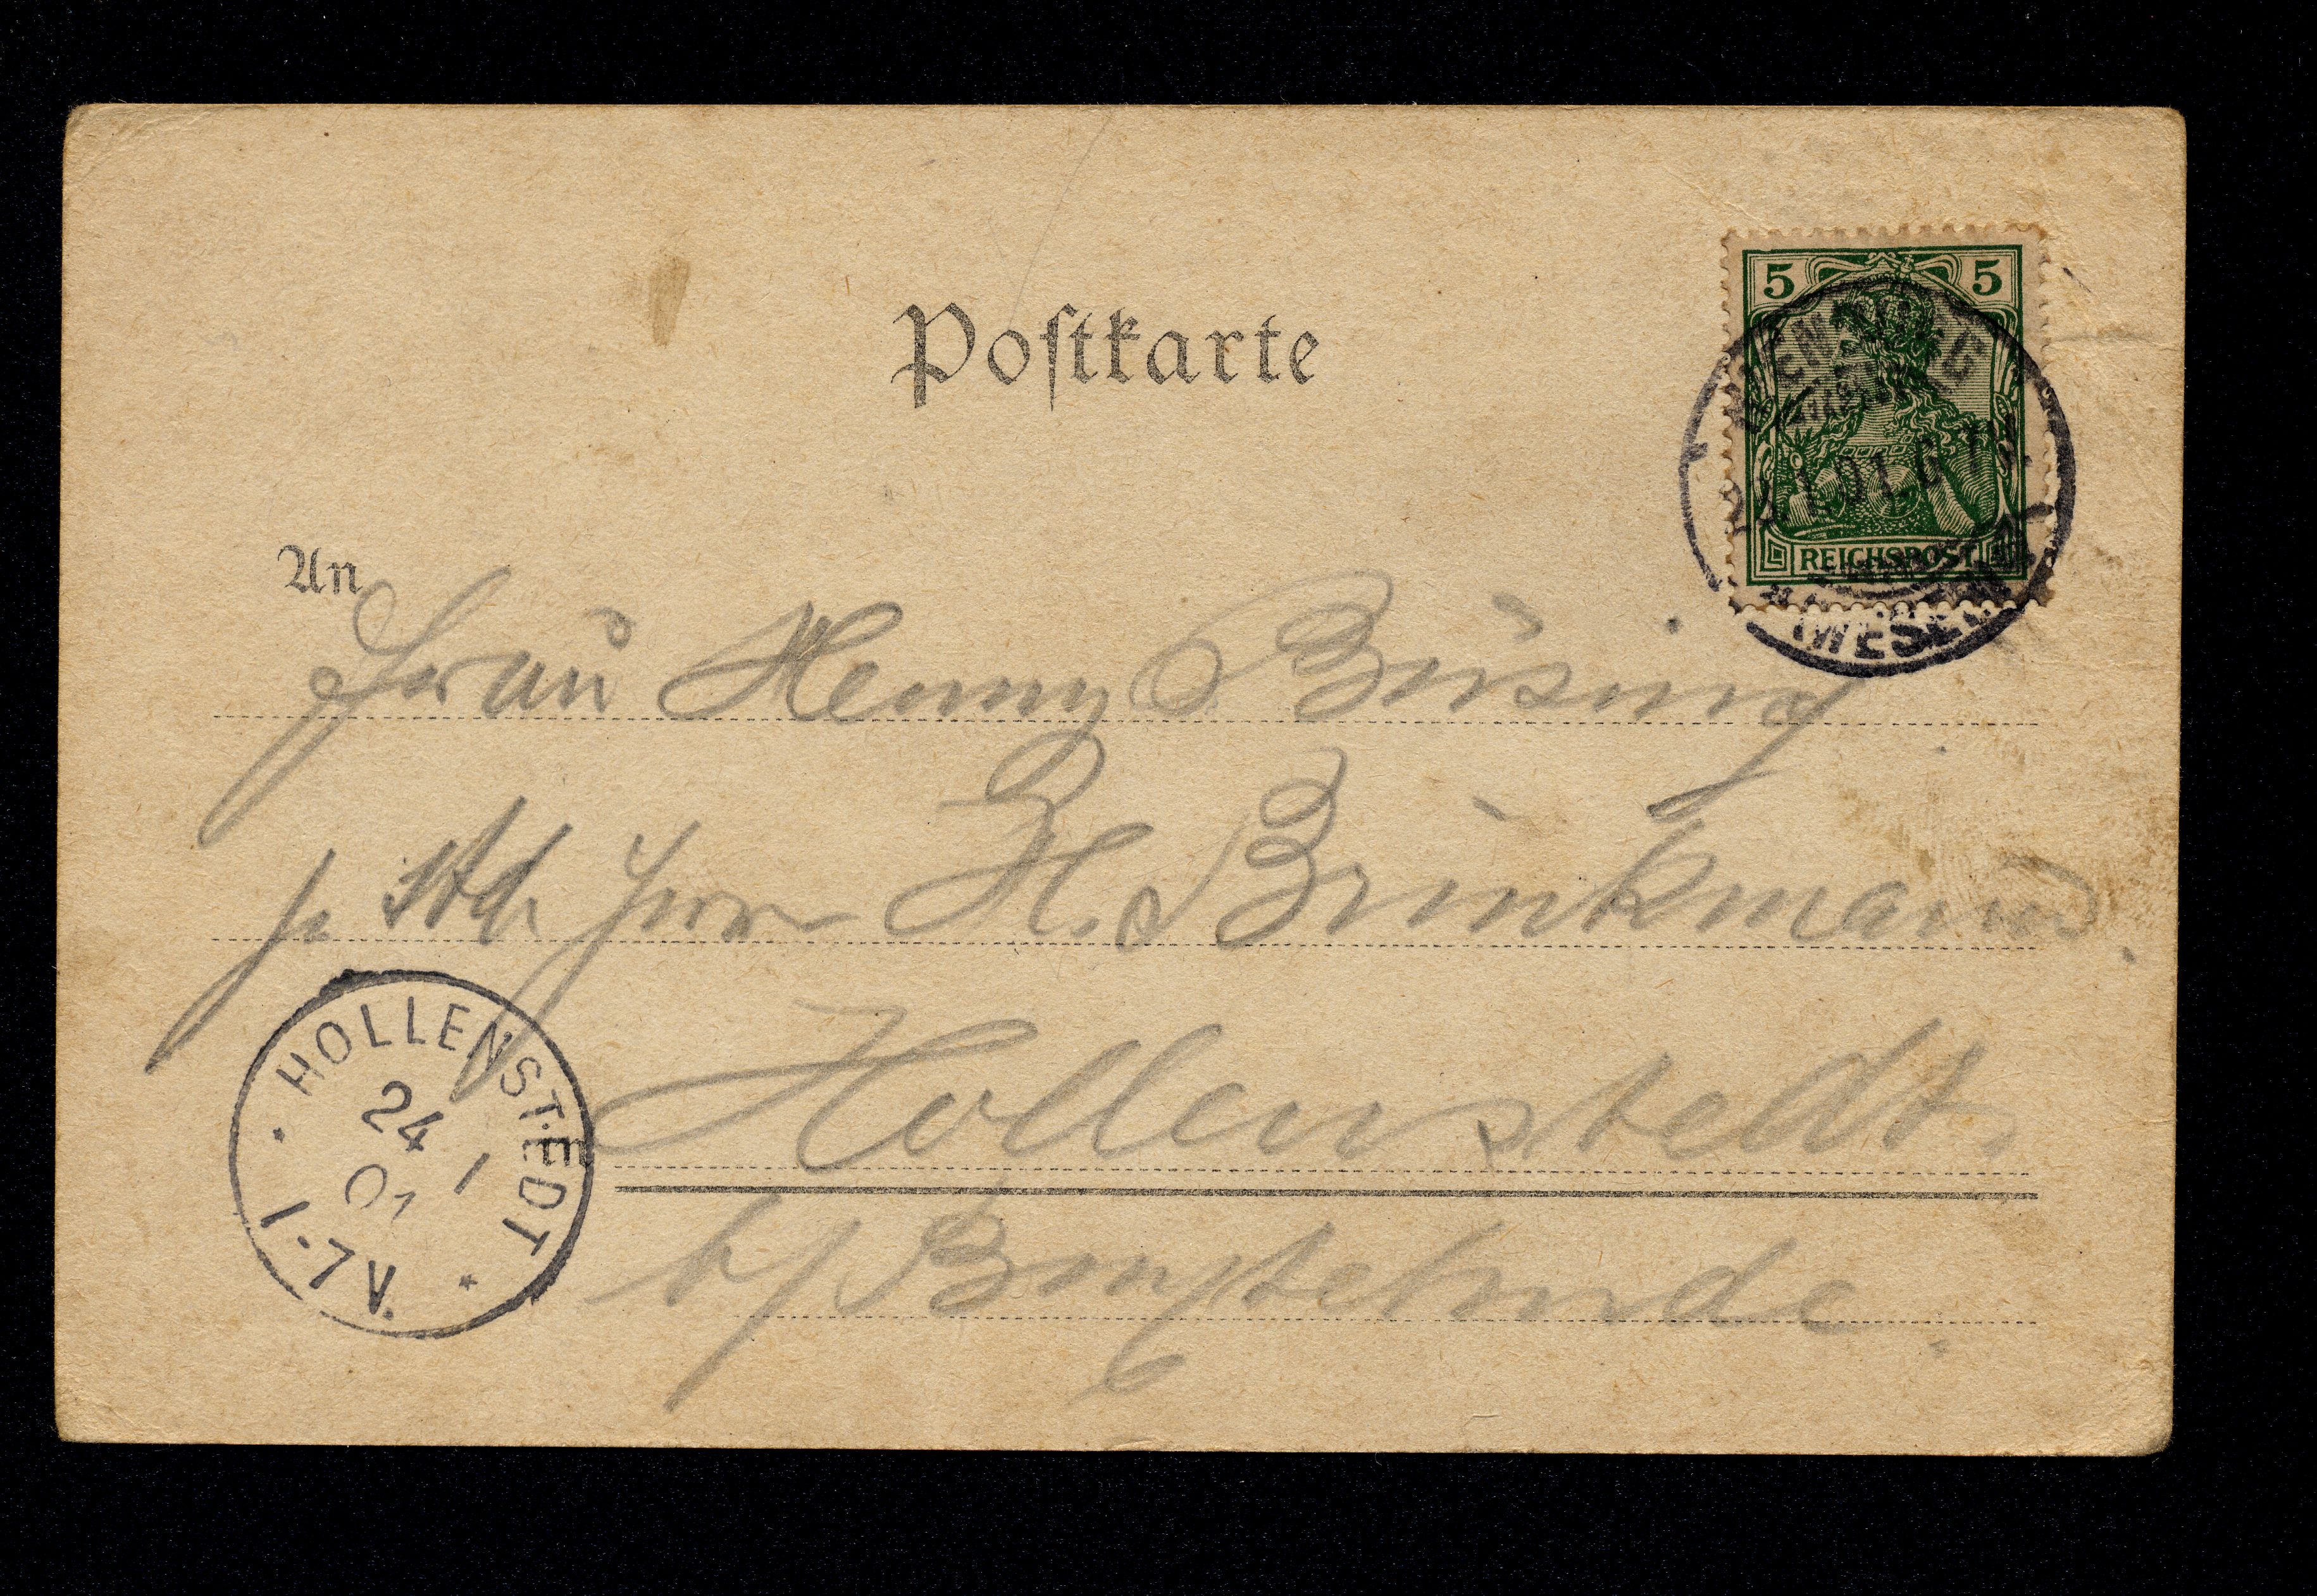 Postkarte
5 5
REICHSPOST
1.01. 6
WESER
An
Frau Henny Büsing
p. Adr. Herrn H. Brinkmann.
in Hollenstedt.
b/Buxtehude.
HOLLENSTEDT
24
1
01
1-7V.